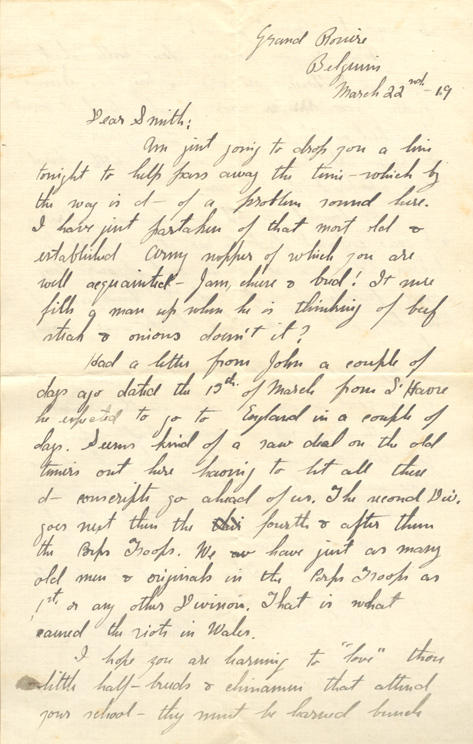 Grand Roiire
Belguim
March 22nd-19
Dear Smith;
Im just going to drop you a line
tonight to help pass away the time - which by
the way is d- of a problem round here.
I have just partaken of that most old &
established Army supper of which you are
well acquainted - Jam, cheese & bread! It sure
fills a man up when he is thinking of beef
steak & onions doesn't it?
Had a letter from John a couple of
days ago dated the 13th of March from L'Havre
he expected to go to England in a couple of
days. Seems kind of a raw deal on the old
timers out here having to let all these
d- conscripts go ahead of us. The second Div.
goes next then the fourth & after them
the Corps Troops. We have just as many
old men & originals in the Corps Troops as
1st. or any other Division. That is what
caused the riots in Wales.
I hope you are learning to "love" those
little half-breeds & chinamen that attend
your school - they must be learned bunch